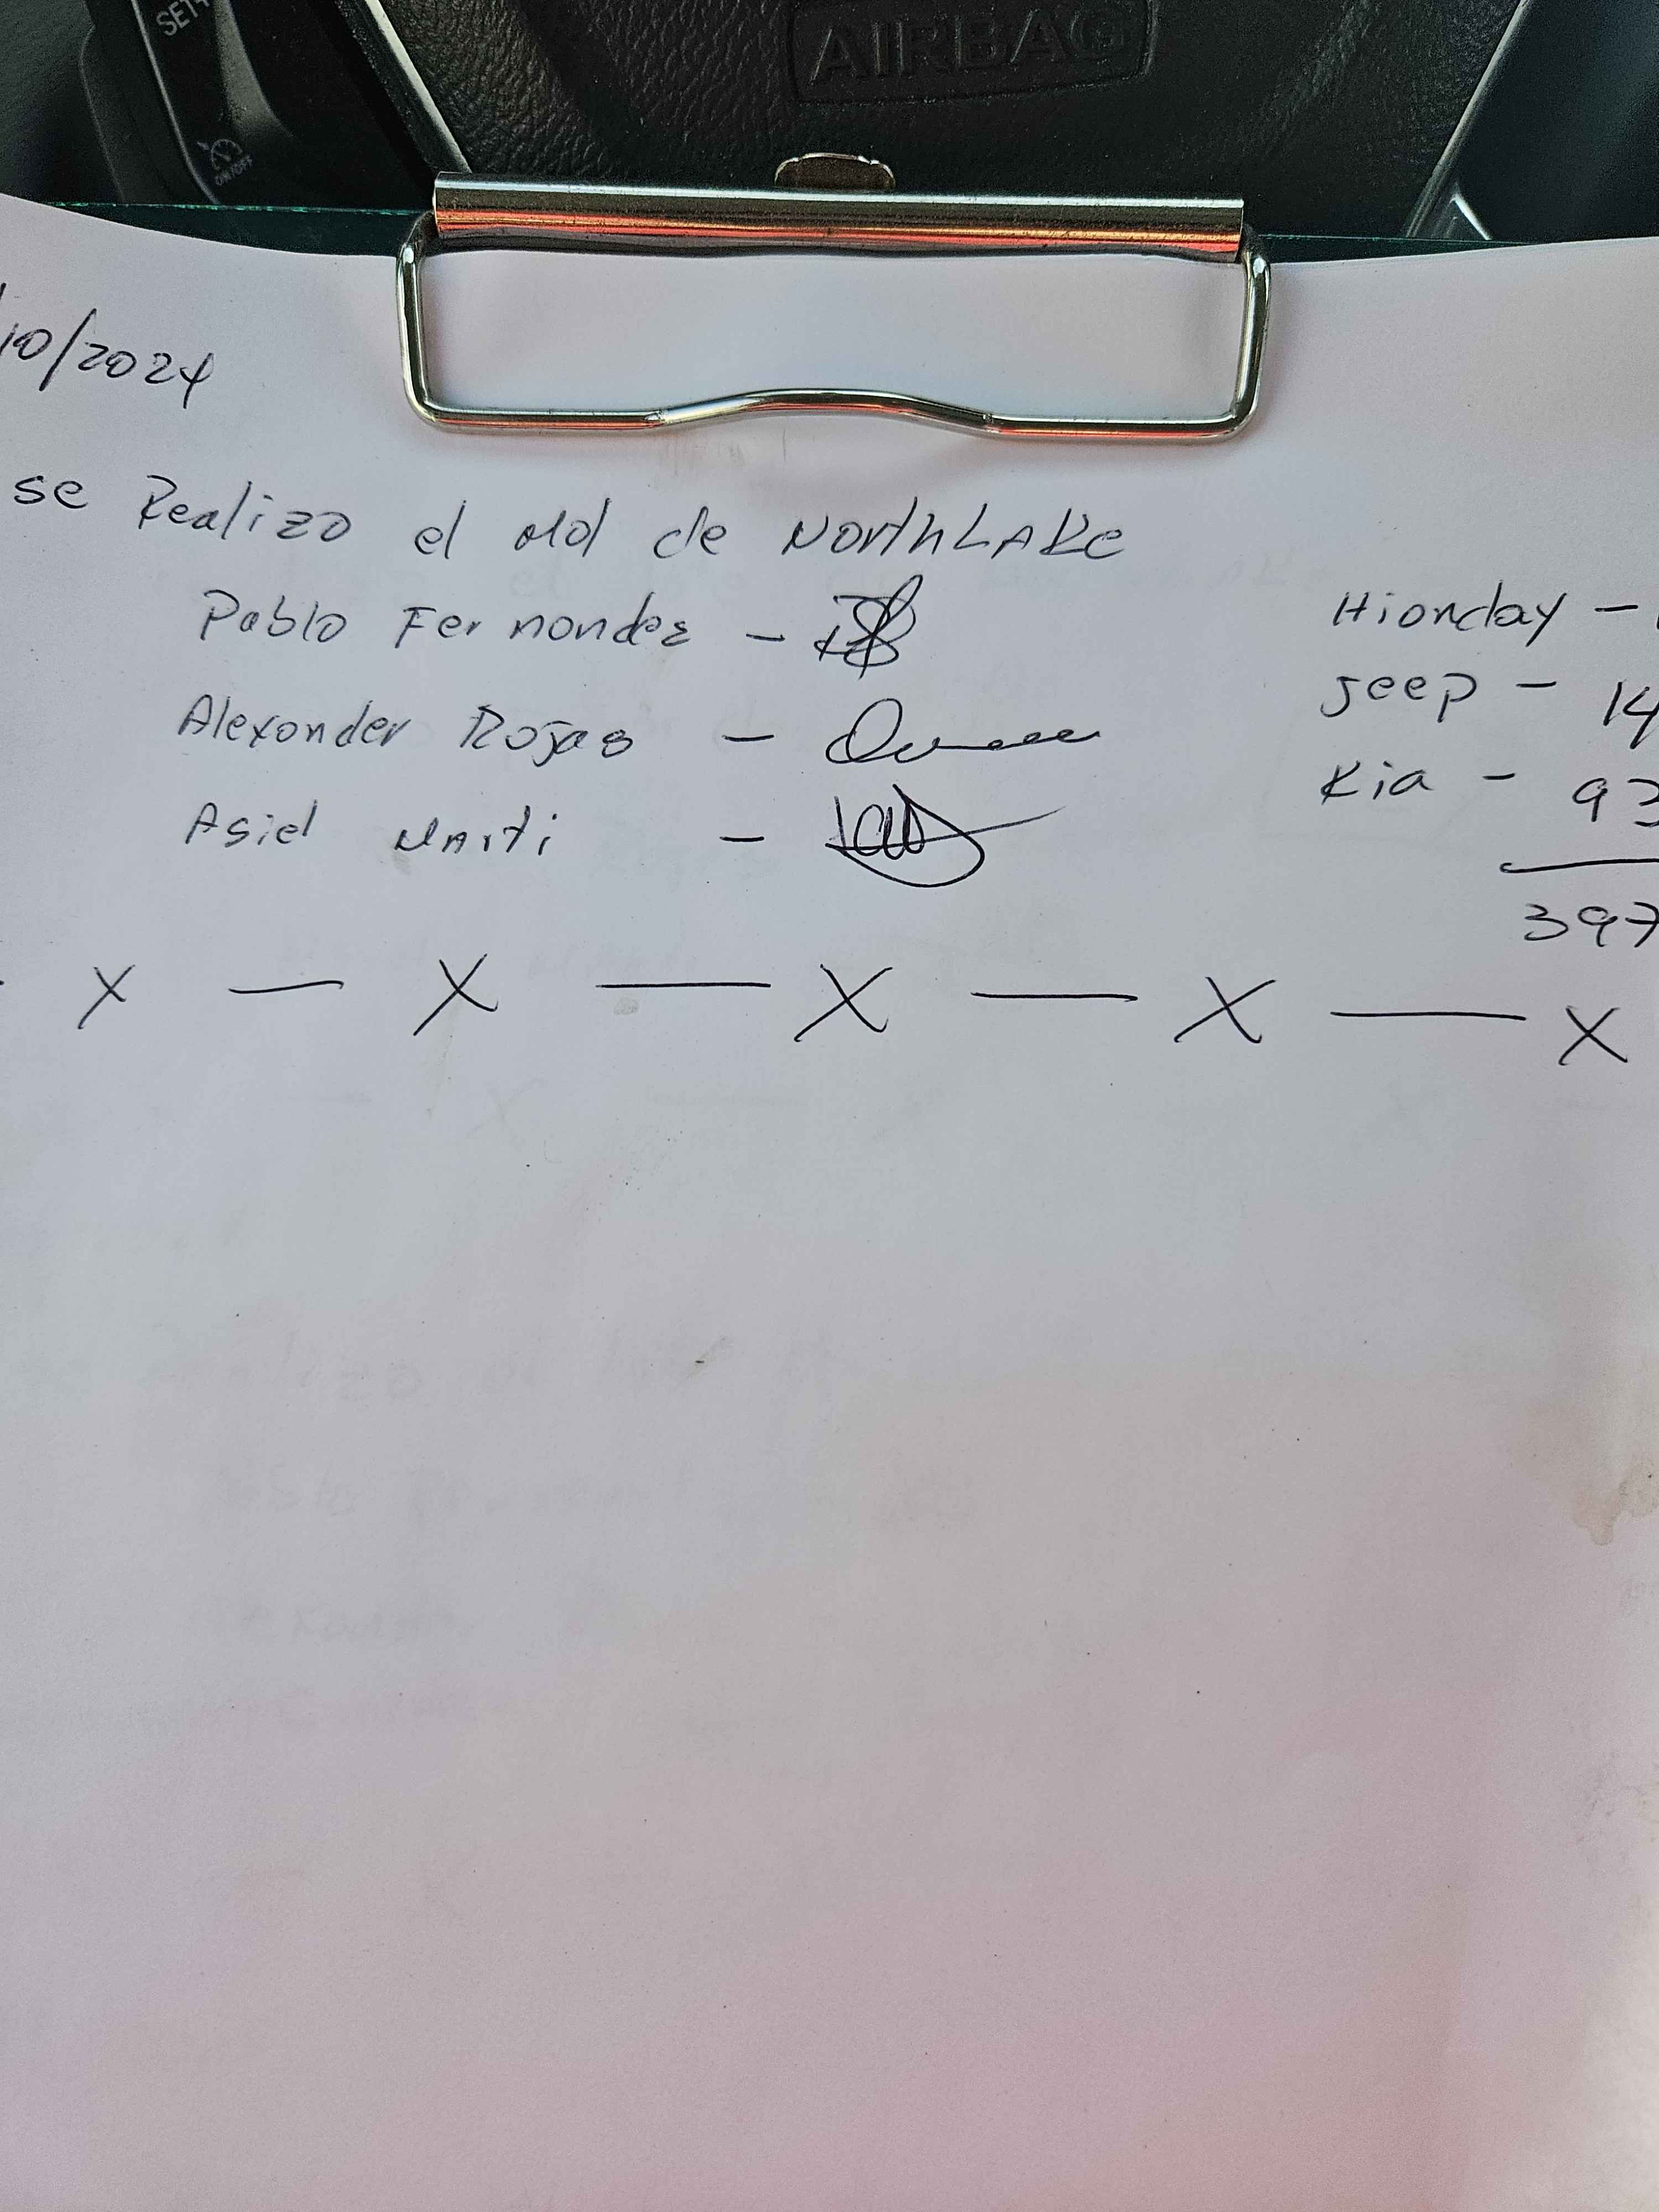 SET+
AIRBAG
ON/OFF
/10/2024
se Realizo el Mol de NorthLAKe
Pablo Fernondez -
Hionday -
Alexonder Rojas -
Jeep - 14
Asiel MArti -
Kia - 93
397
X — X — X — X — X